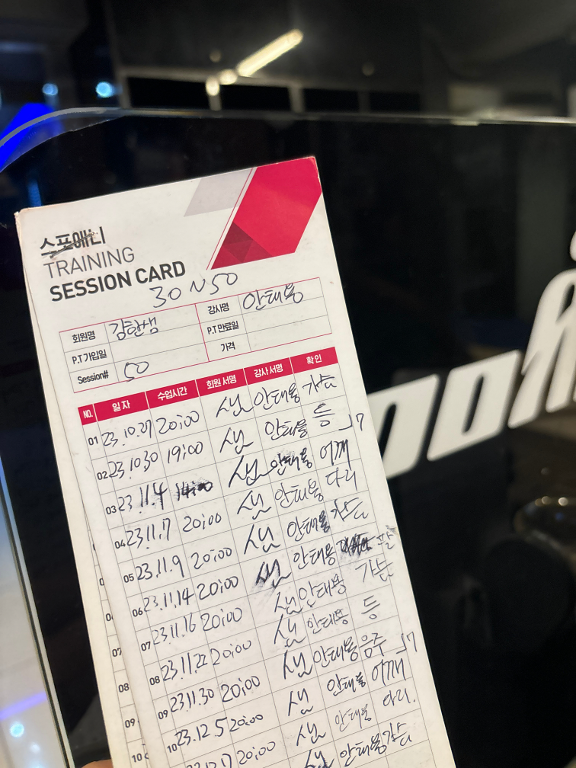 스포애니
TRAINING
SESSION CARD
30 N 50
회원명 김한샘 강사명 안태용
P.T가입일 P.T만료일
Session# 50 가격
NO. 일 자 수업시간 회원 서명 강사 서명 확 인
01 23.10.27 20:00 샘 안태용 가슴
02 23.10.30 19:00 샘 안태용 등
03 23.11.4 샘 안태용 어깨
04 23.11.7 20:00 샘 안태용 다리
05 23.11.9 20:00 샘 안태용 가슴
06 23.11.14 20:00 샘 안태용 팔
07 23.11.16 20:00 샘 안태용 가슴
08 23.11.22 20:00 샘 안태용 등
09 23.11.30 20:00 샘 안태용 어깨
10 23.12.5 20:00 샘 안태용 다리.
20:00 샘 안태용 가슴